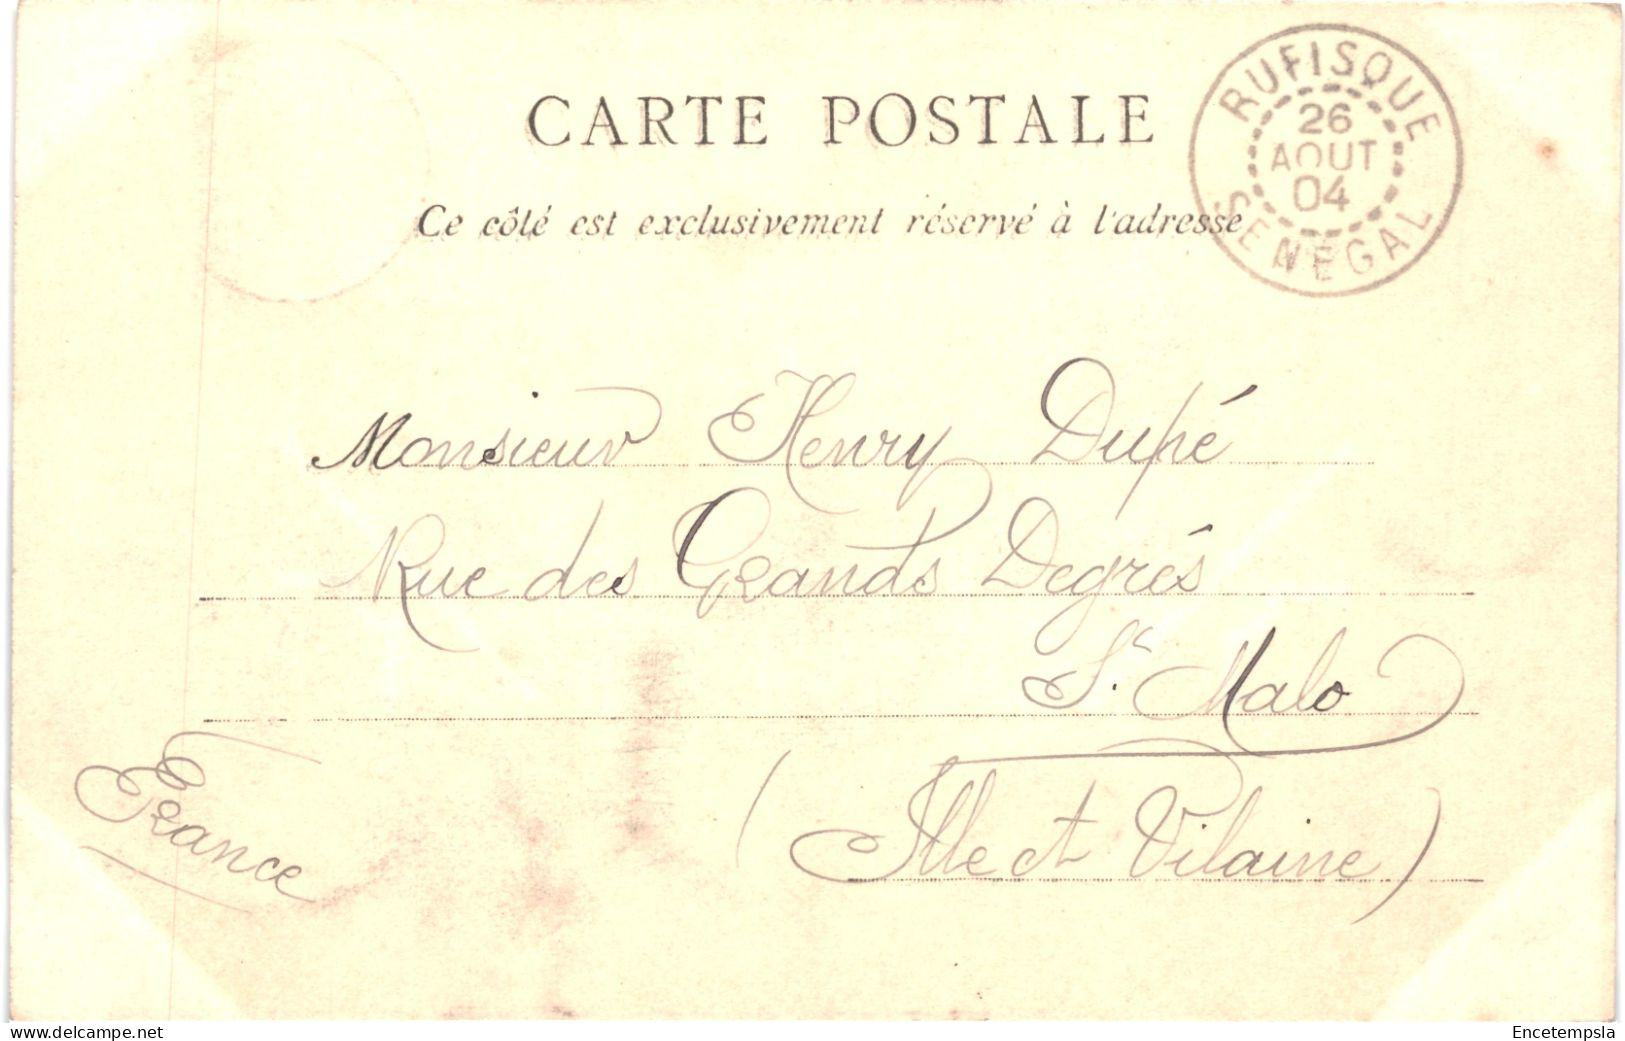 CARTE POSTALE
Ce côté est exclusivement réservé à l'adresse
RUFISQUE
26
AOUT
04
SENEGAL
Monsieur Henry Dupé
Rue des Grands Degrés
St. Malo
(Ille et Vilaine)
France
www.delcampe.net
Encetempsla